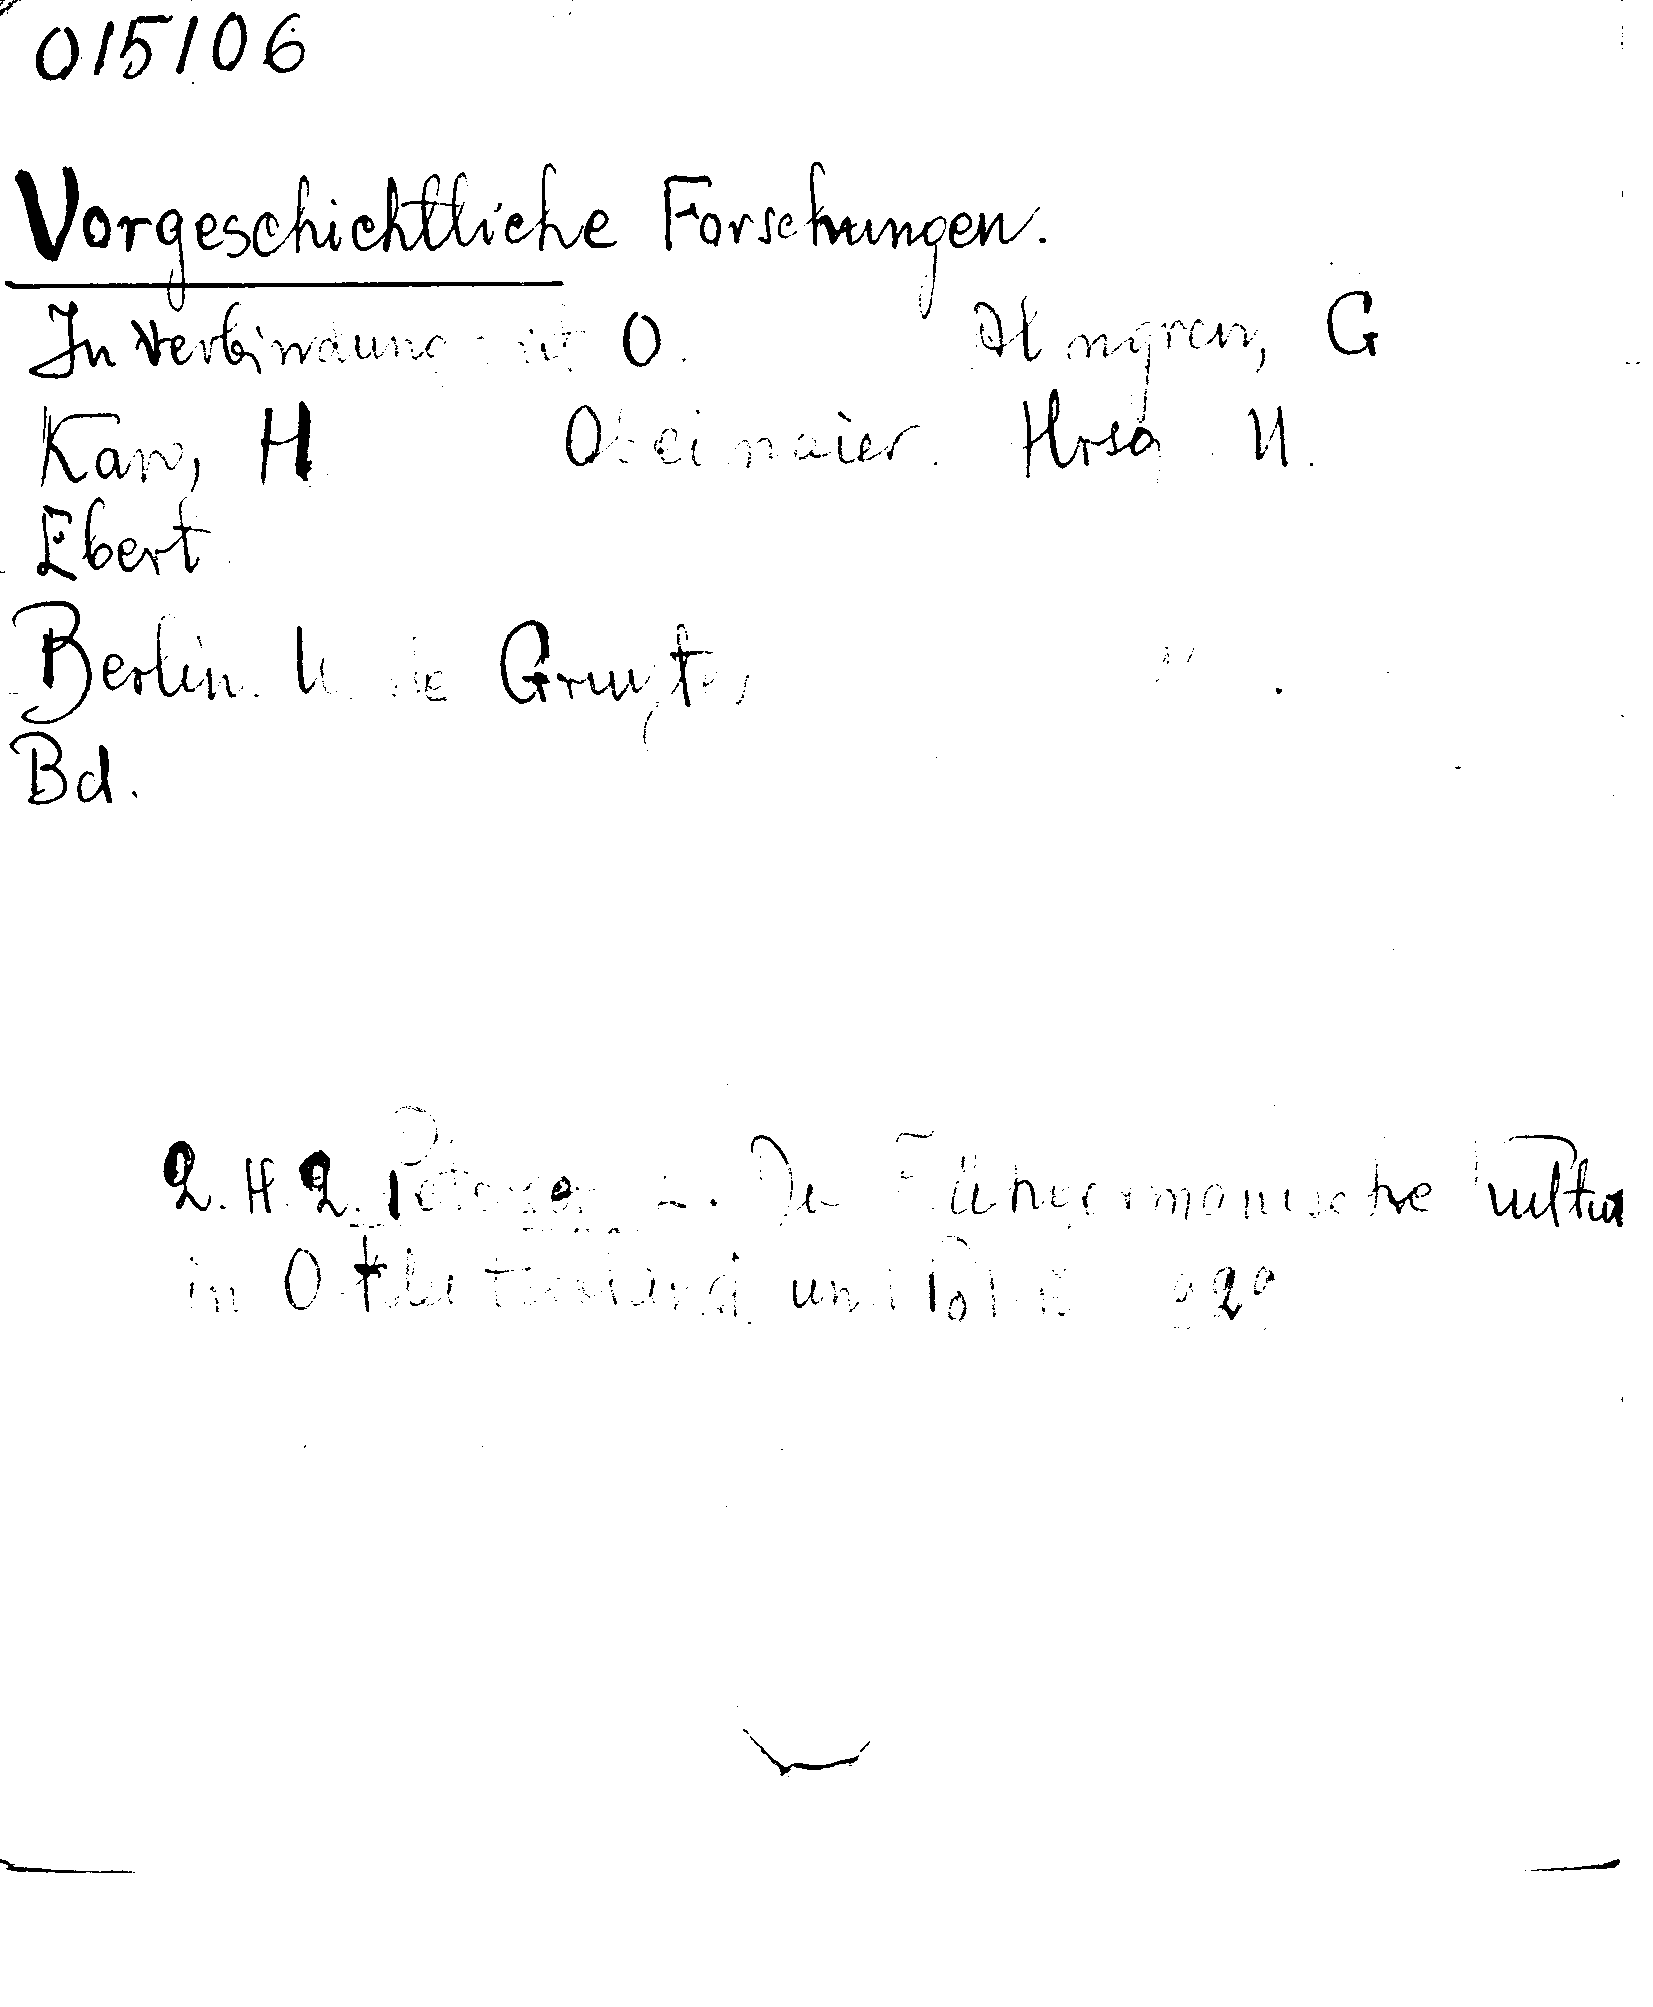 015106
Vorgeschichtliche Forschungen.
In Verbindung mit O. Almgren, G
Karo, H. Obermaier. Hrsg. M.
Ebert
Berlin. de Gruyter,
Bd.
2. H. 2. Petersen Die Frühgermanische Kultur
in Ostdeutschland und Polen 929